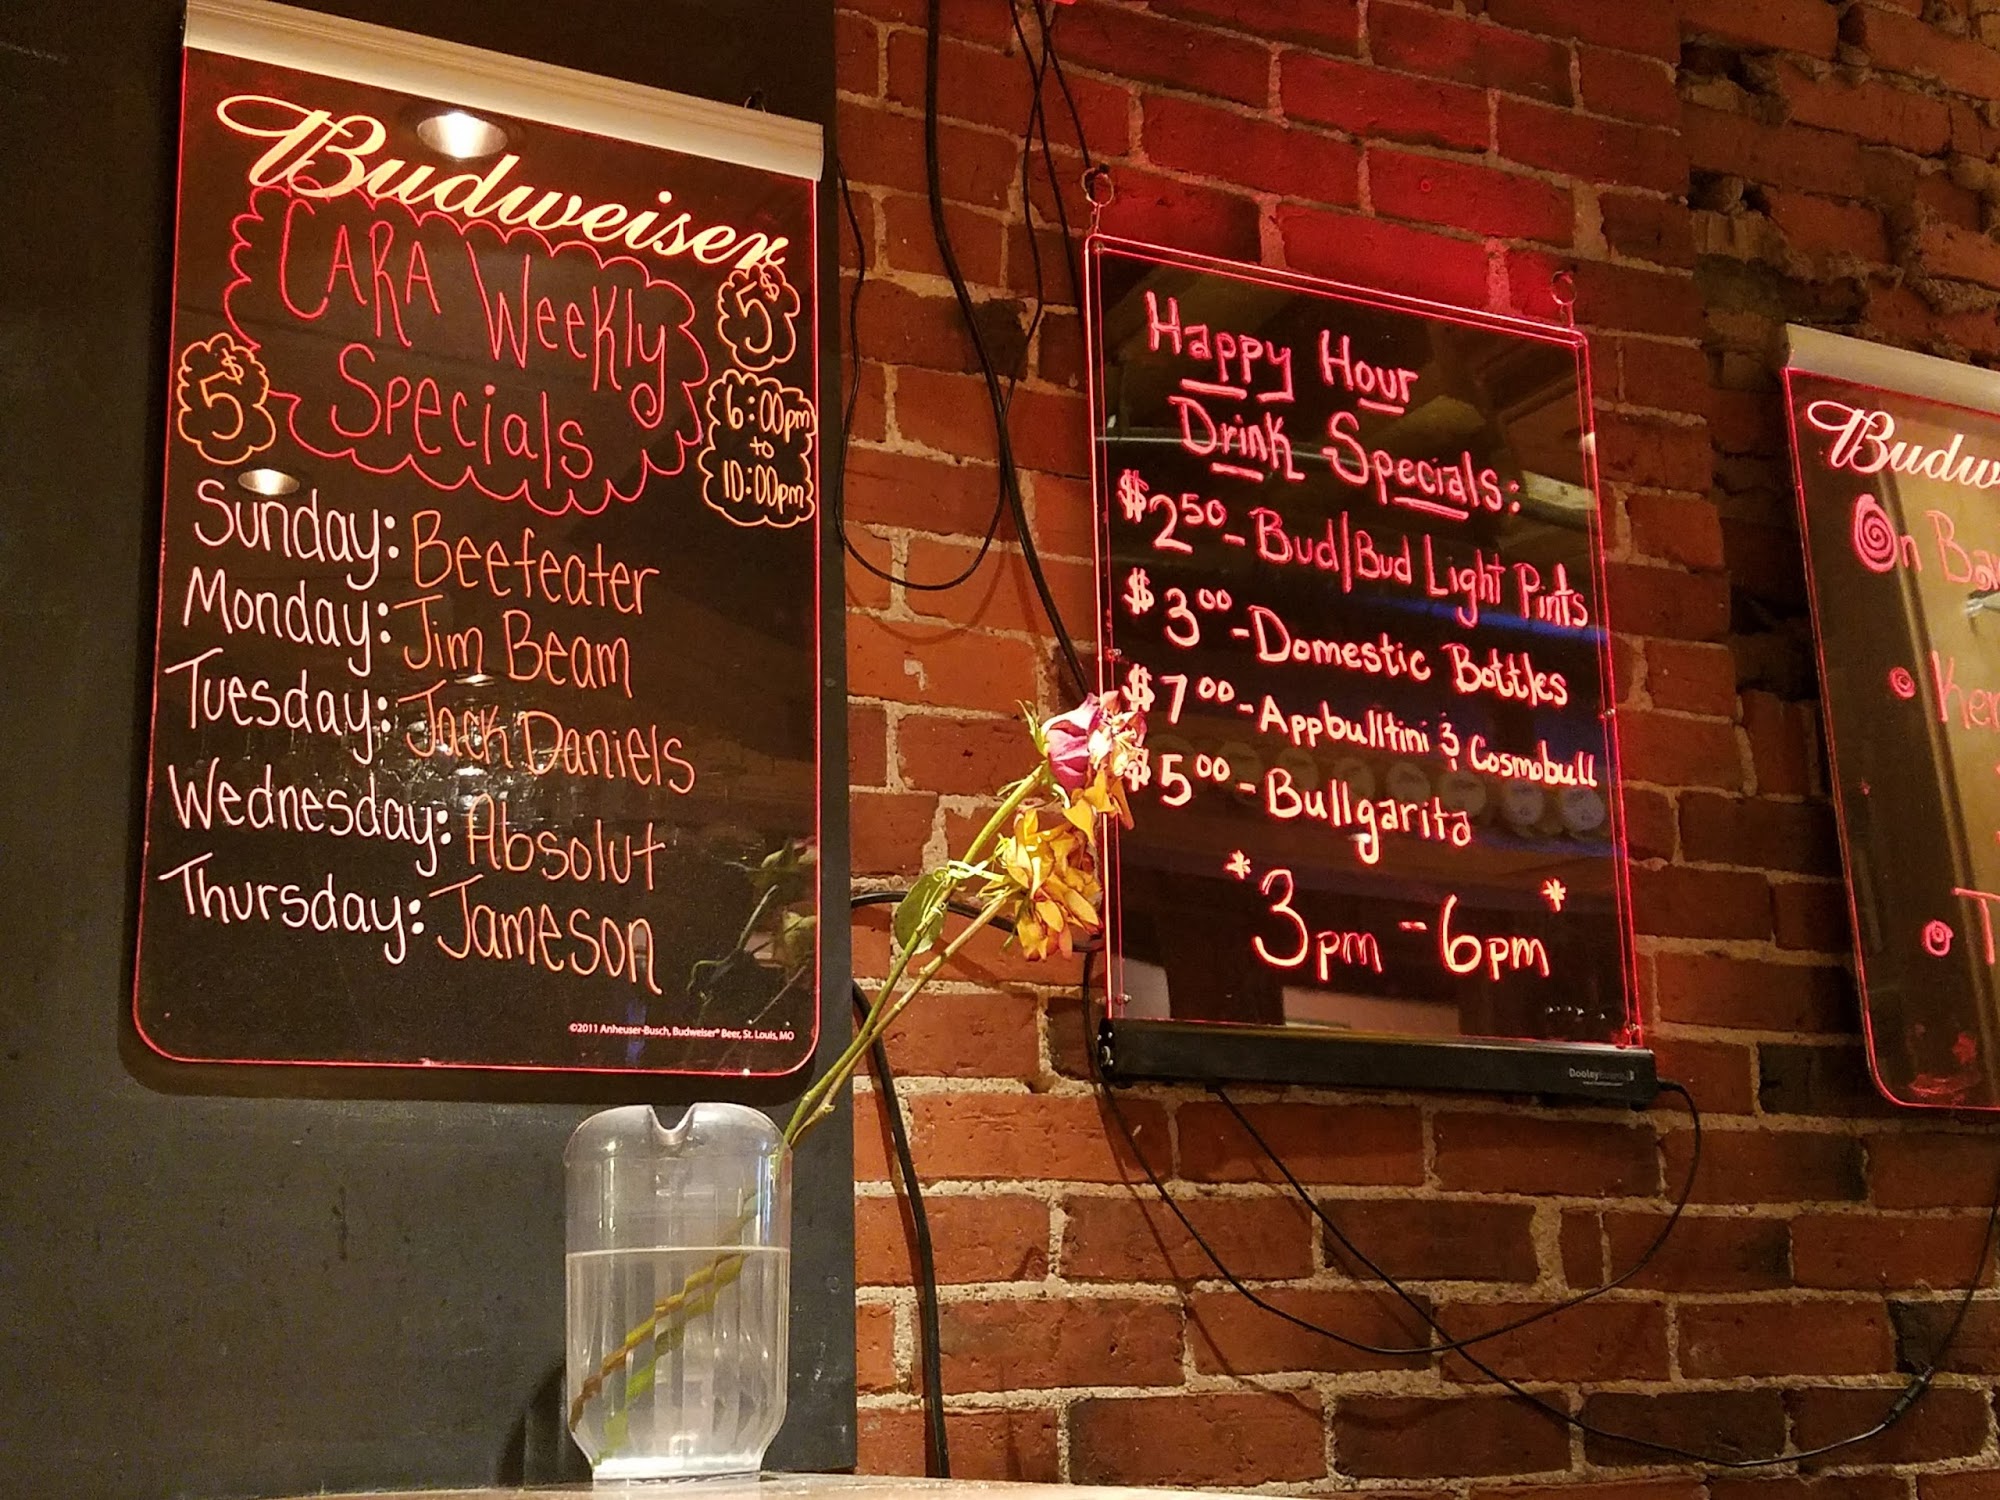 Budweiser
CARA Weekly
Specials
$5
$5
6:00pm
to
10:00pm
Sunday: Beefeater
Monday: Jim Beam
Tuesday: Jack Daniels
Wednesday: Absolut
Thursday: Jameson
©2011 Anheuser-Busch, Budweiser® Beer, St. Louis, MO
Happy Hour
Drink Specials:
$2.50 - Bud/Bud Light Pints
$3.00 - Domestic Bottles
$7.00 - Appbulltini & Cosmobull
$5.00 - Bullgarita
*3pm - 6pm*
Budw
On Ba
Ker
T